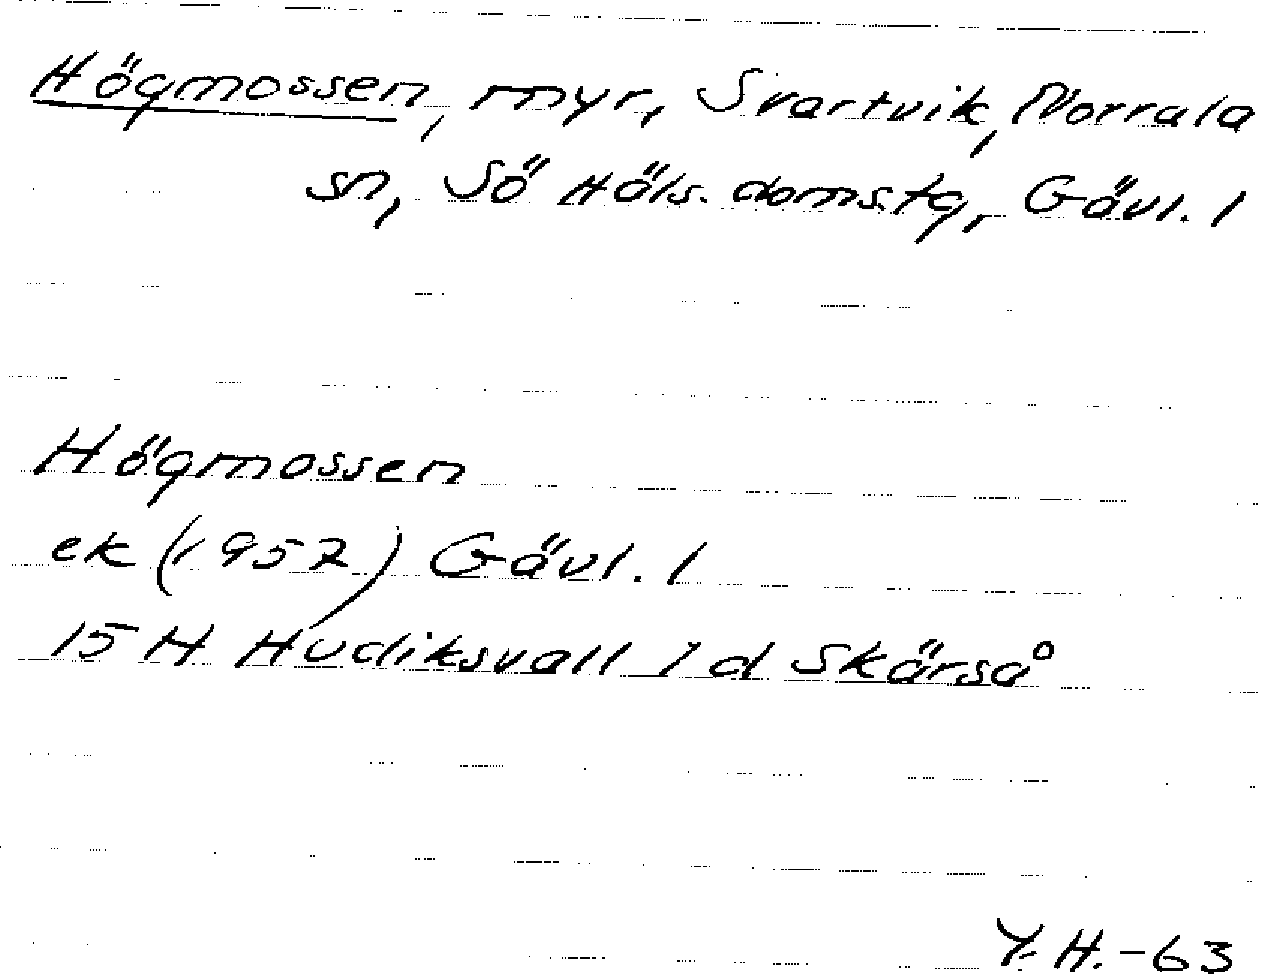 Högmossen, myr, Svartvik, Norrala
sn, Sö Häls. domstg, Gävl. l
Högmossen
ek (1957) Gävl. l
15 H Hudiksvall 1 d Skärså
Y.H.-63